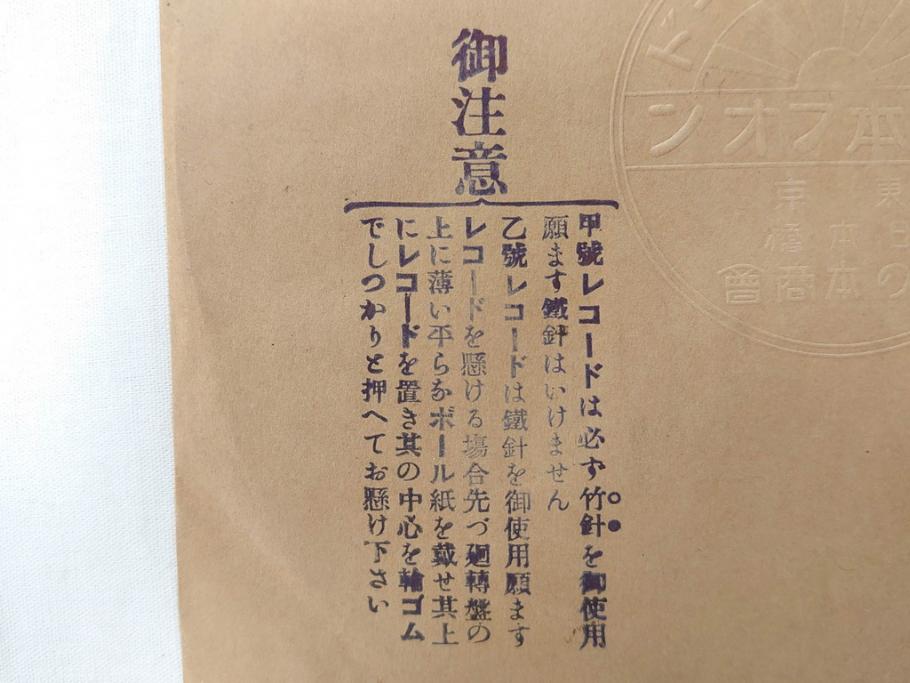 御注意
甲號レコードは必ず竹針を御使用
願ます鐵針はいけません
乙號レコードは鐵針を御使用願ます
レコードを懸ける塲合先づ廻轉盤の
上に薄い平らなボール紙を戴せ其上
にレコードを置き其の中心を輪ゴム
でしつかりと押へてお懸け下さい
本フオン
東京
の本商會